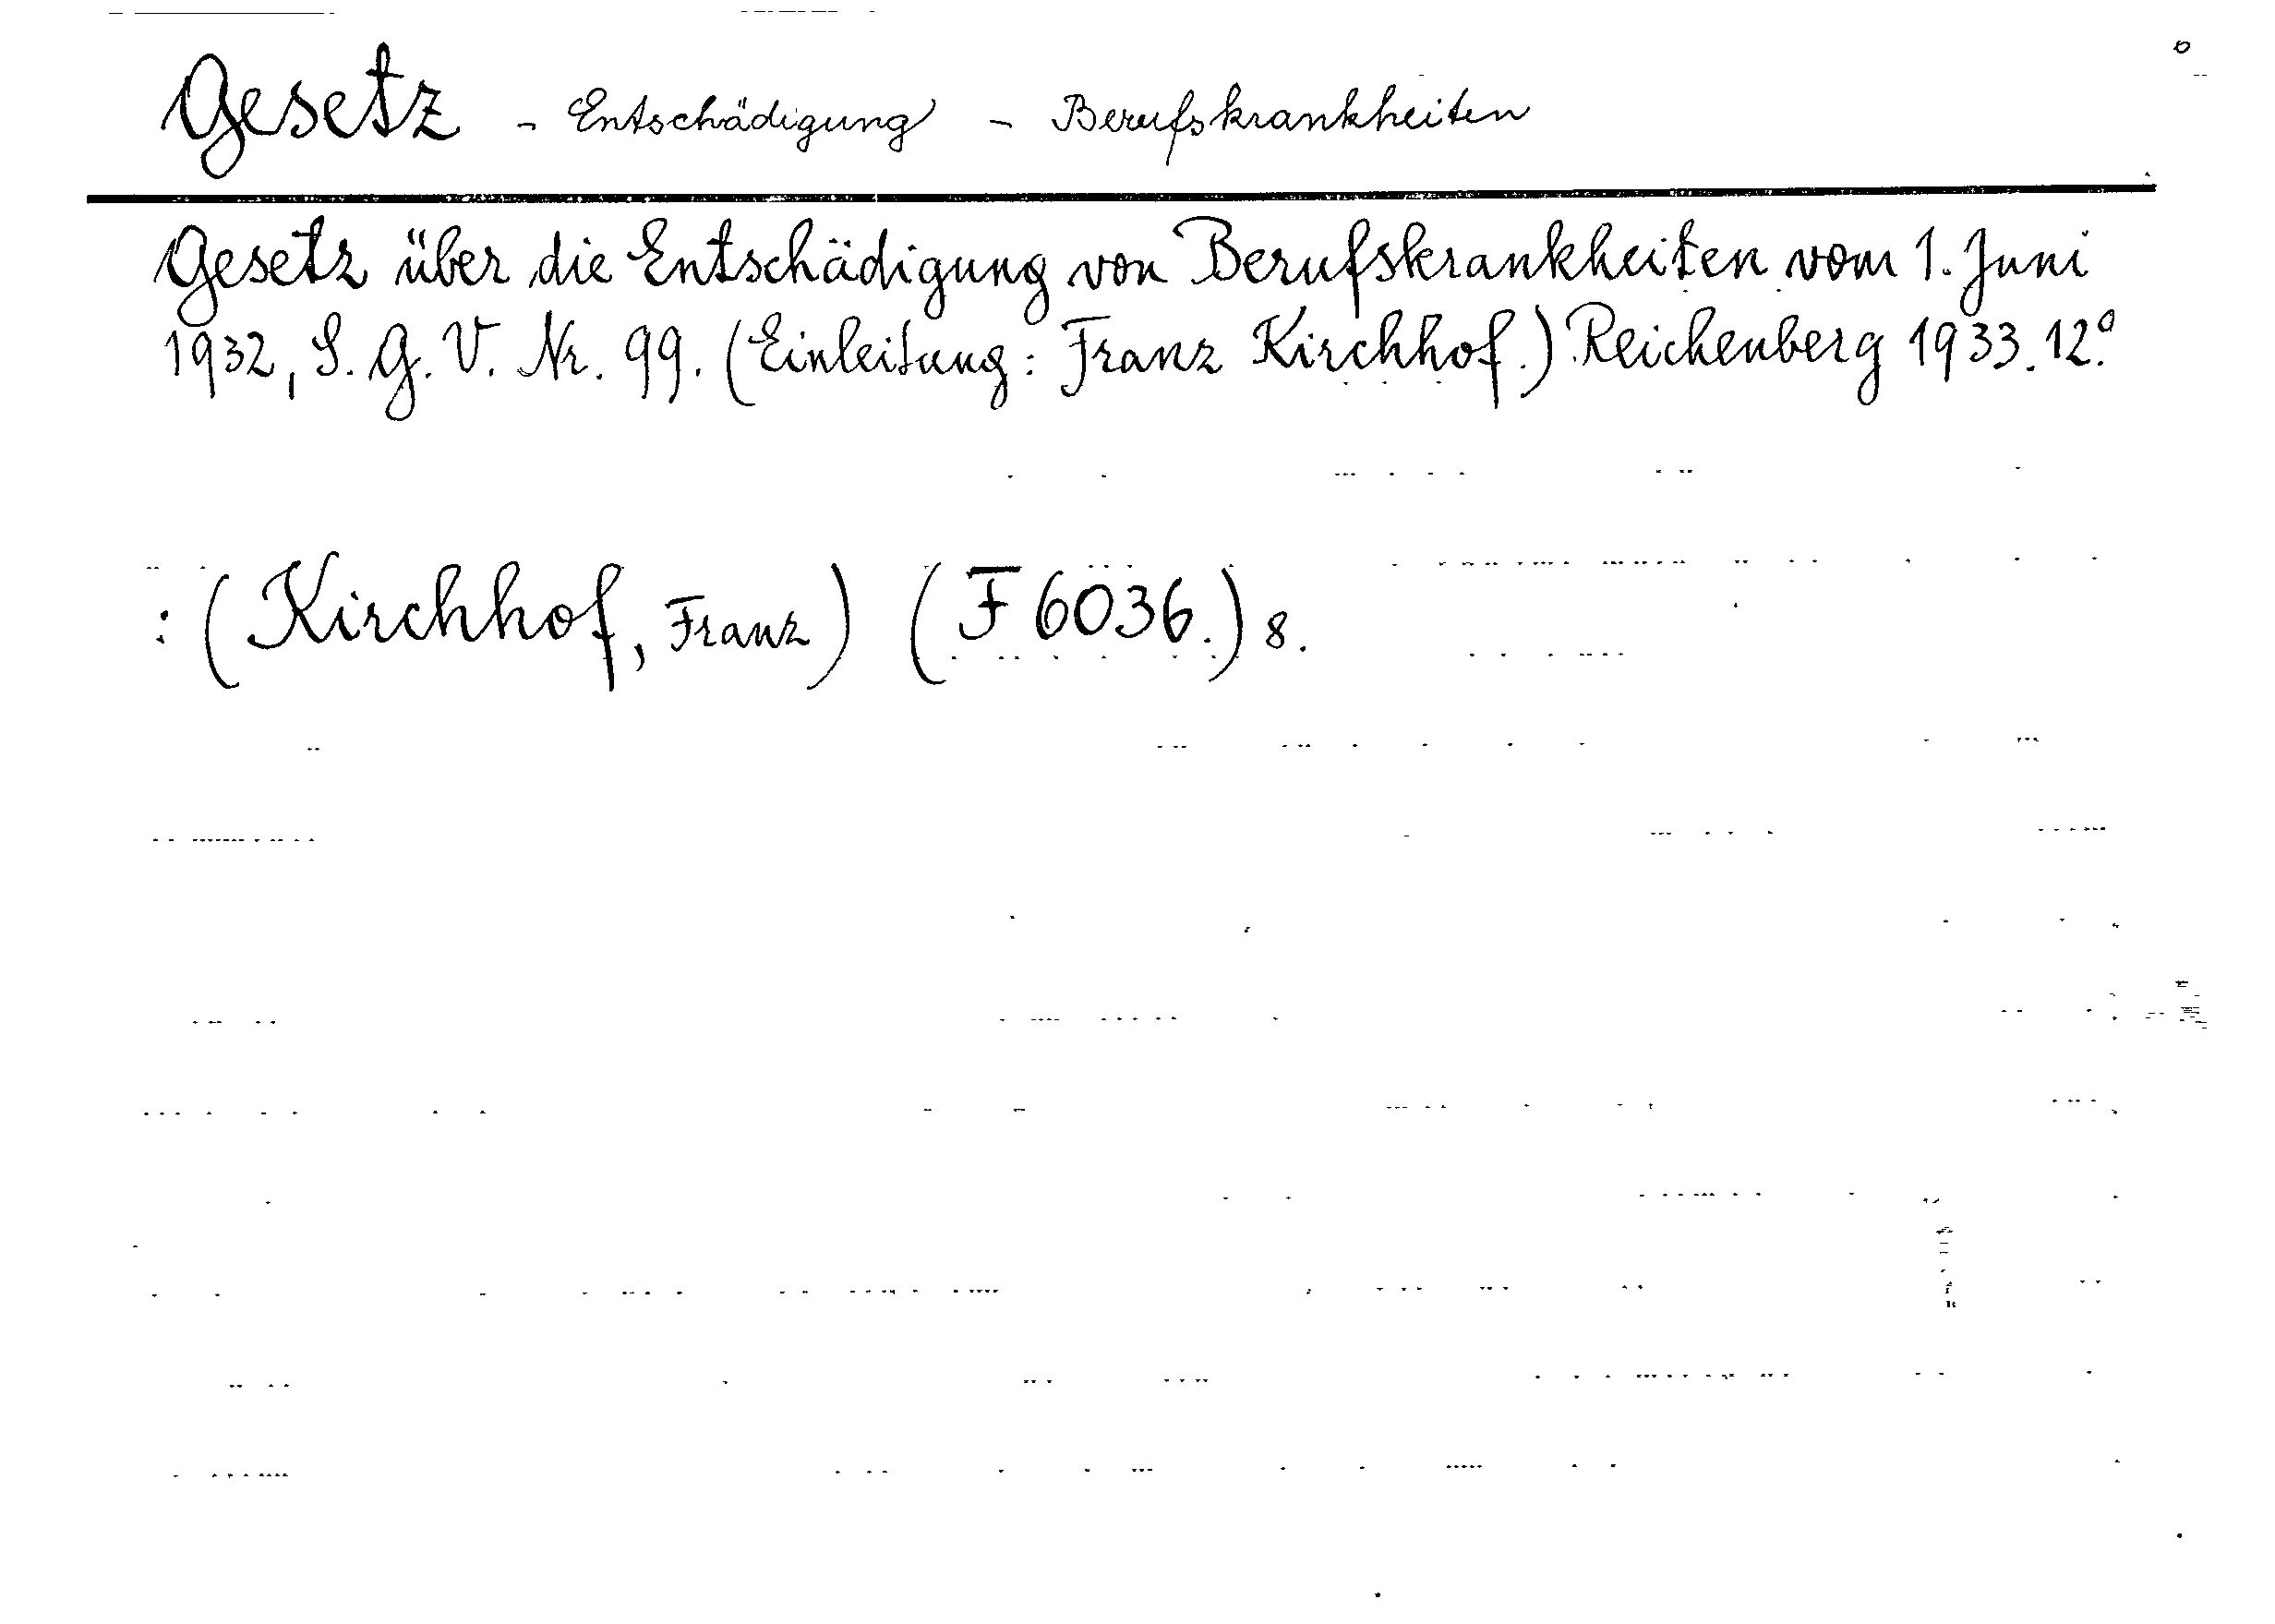 Gesetz - Entschädigung - Berufskrankheiten
Gesetz über die Entschädigung von Berufskrankheiten vom 1. Juni
1932, S. G. V. Nr. 99. (Einleitung: Franz Kirchhof.) Reichenberg 1933. 12.°
: (Kirchhof, Franz) (F 6036.) 8.